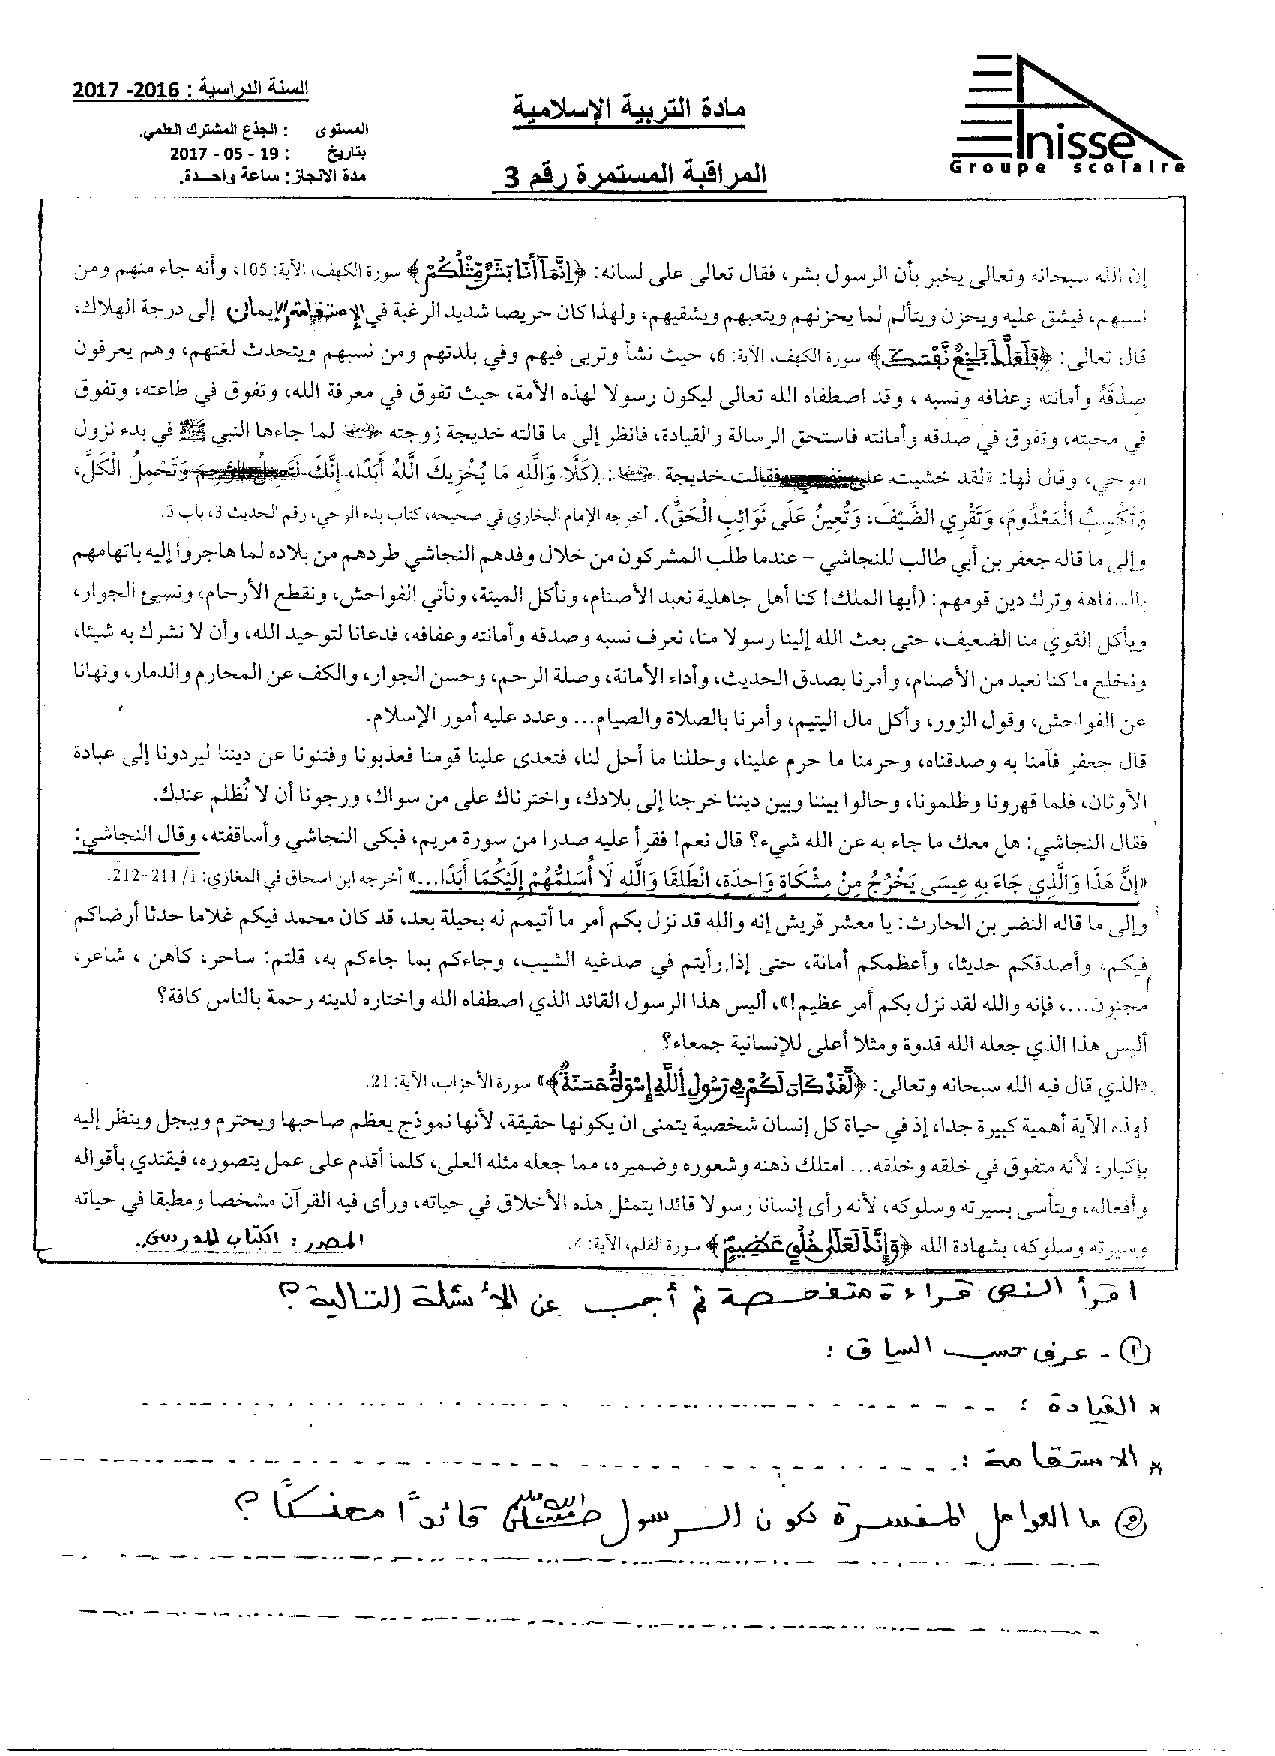 السنة الدراسية : 2016- 2017
المستوى : الجذع المشترك العلمي.
بتاريخ : 19 - 05 - 2017
مدة الانجاز: ساعة واحدة.
مادة التربية الإسلامية
المراقبة المستمرة رقم 3
Anisse
Groupe scolaire
إن الله سبحانه وتعالى يخبر بأن الرسول بشر، فقال تعالى على لسانه: ﴿إِنَّمَا أَنَا بَشَرٌ مِّثْلُكُمْ﴾ سورة الكهف، الآية: 105، وأنه جاء منهم ومن
نسبهم، فيشق عليه ويحزن ويتألم لما يحزنهم ويتعبهم ويشقيهم، ولهذا كان حريصا شديد الرغبة في الإستقامة والإيمان إلى درجة الهلاك،
قال تعالى: ﴿فَلَعَلَّكَ بَاخِعٌ نَّفْسَكَ﴾ سورة الكهف، الآية: 6، حيث نشأ وتربى فيهم وفي بلدتهم ومن نسبهم ويتحدث لغتهم، وهم يعرفون
صدقه وأمانته وعفافه ونسبه ، وقد اصطفاه الله تعالى ليكون رسولا لهذه الأمة، حيث تفوق في معرفة الله، وتفوق في طاعته، وتفوق
في محبته، وتفوق في صدقه وأمانته فاستحق الرسالة والقيادة، فانظر إلى ما قالته خديجة زوجته لما جاءها النبي ﷺ في بدء نزول
الوحي، وقال لها: «لقد خشيت على فقالت خديجة : (كَلَّا وَاللَّهِ مَا يُخْزِيكَ اللَّهُ أَبَدًا، إِنَّكَ لَتَصِلُ الرَّحِمَ وَتَحْمِلُ الْكَلَّ،
وَتَكْسِبُ الْمَعْدُومَ، وَتَقْرِي الضَّيْفَ، وَتُعِينُ عَلَى نَوَائِبِ الْحَقِّ). أخرجه الإمام البخاري في صحيحه، كتاب بدء الوحي، رقم الحديث 3، باب 3.
وإلى ما قاله جعفر بن أبي طالب للنجاشي – عندما طلب المشركون من خلال وفدهم النجاشي طردهم من بلاده لما هاجروا إليه باتهامهم
بالسفاهة وترك دين قومهم: (أيها الملك! كنا أهل جاهلية نعبد الأصنام، ونأكل الميتة، ونأتي الفواحش، ونقطع الأرحام، ونسيئ الجوار،
ويأكل القوي منا الضعيف، حتى بعث الله إلينا رسولا منا، نعرف نسبه وصدقه وأمانته وعفافه، فدعانا لتوحيد الله، وأن لا نشرك به شيئا،
ونخلع ما كنا نعبد من الأصنام، وأمرنا بصدق الحديث، وأداء الأمانة، وصلة الرحم، وحسن الجوار، والكف عن المحارم والدماء، ونهانا
عن الفواحش، وقول الزور، وأكل مال اليتيم، وأمرنا بالصلاة والصيام... وعدد عليه أمور الإسلام.
قال جعفر فآمنا به وصدقناه، وحرمنا ما حرم علينا، وحللنا ما أحل لنا، فتعدى علينا قومنا فعذبونا وفتنونا عن ديننا ليردونا إلى عبادة
الأوثان، فلما قهرونا وظلمونا، وحالوا بيننا وبين ديننا خرجنا إلى بلادك، واخترناك على من سواك، ورجونا أن لا نُظلم عندك.
فقال النجاشي: هل معك ما جاء به عن الله شيء؟ قال نعم! فقرأ عليه صدرا من سورة مريم، فبكى النجاشي وأساقفته، وقال النجاشي:
«إِنَّ هَذَا وَالَّذِي جَاءَ بِهِ عِيسَى يَخْرُجُ مِنْ مِشْكَاةٍ وَاحِدَةٍ، انْطَلِقَا وَاللَّهِ لَا أُسَلِّمُهُمْ إِلَيْكُمَا أَبَدًا...» أخرجه ابن اسحاق في المغازي: 1/ 211-212.
وإلى ما قاله النضر بن الحارث: يا معشر قريش إنه والله قد نزل بكم أمر ما أتيتم له بحيلة بعد، قد كان محمد فيكم غلاما حدثا أرضاكم
فيكم، وأصدقكم حديثا، وأعظمكم أمانة، حتى إذا رأيتم في صدغيه الشيب، وجاءكم بما جاءكم به، قلتم: ساحر، كاهن ، شاعر،
مجنون...، فإنه والله لقد نزل بكم أمر عظيم!»، أليس هذا الرسول القائد الذي اصطفاه الله واختاره لدينه رحمة بالناس كافة؟
أليس هذا الذي جعله الله قدوة ومثلا أعلى للإنسانية جمعاء؟
«الذي قال فيه الله سبحانه وتعالى: ﴿لَّقَدْ كَانَ لَكُمْ فِي رَسُولِ اللَّهِ إِسْوَةٌ حَسَنَةٌ﴾» سورة الأحزاب، الآية: 21.
لهذه الآية أهمية كبيرة جدا، إذ في حياة كل إنسان شخصية يتمنى ان يكونها حقيقة، لأنها نموذج يعظم صاحبها ويحترم ويبجل وينظر إليه
بإكبار: لأنه متفوق في خلقه وخلقه... امتلك ذهنه وشعوره وضميره، مما جعله مثله العلى، كلما أقدم على عمل يتصوره، فيقتدي بأقواله
وأفعاله، ويتأسى بسيرته وسلوكه، لأنه رأى إنسانا رسولا قائدا يتمثل هذه الأخلاق في حياته، ورأى فيه القرآن مشخصا ومطبقا في حياته
وسيرته وسلوكه، بشهادة الله ﴿وَإِنَّكَ لَعَلَىٰ خُلُقٍ عَظِيمٍ﴾ سورة القلم، الآية: 4. المصدر : الكتاب المدرسي.
اقرأ النص قراءة متفحصة ثم أجب عن الأسئلة التالية ؟
① - عرف حسب السياق :
* القيادة :
* الاستقامة :
② ما العوامل المفسرة لكون الرسول صلى الله عليه وسلم قائداً محنكاً ؟